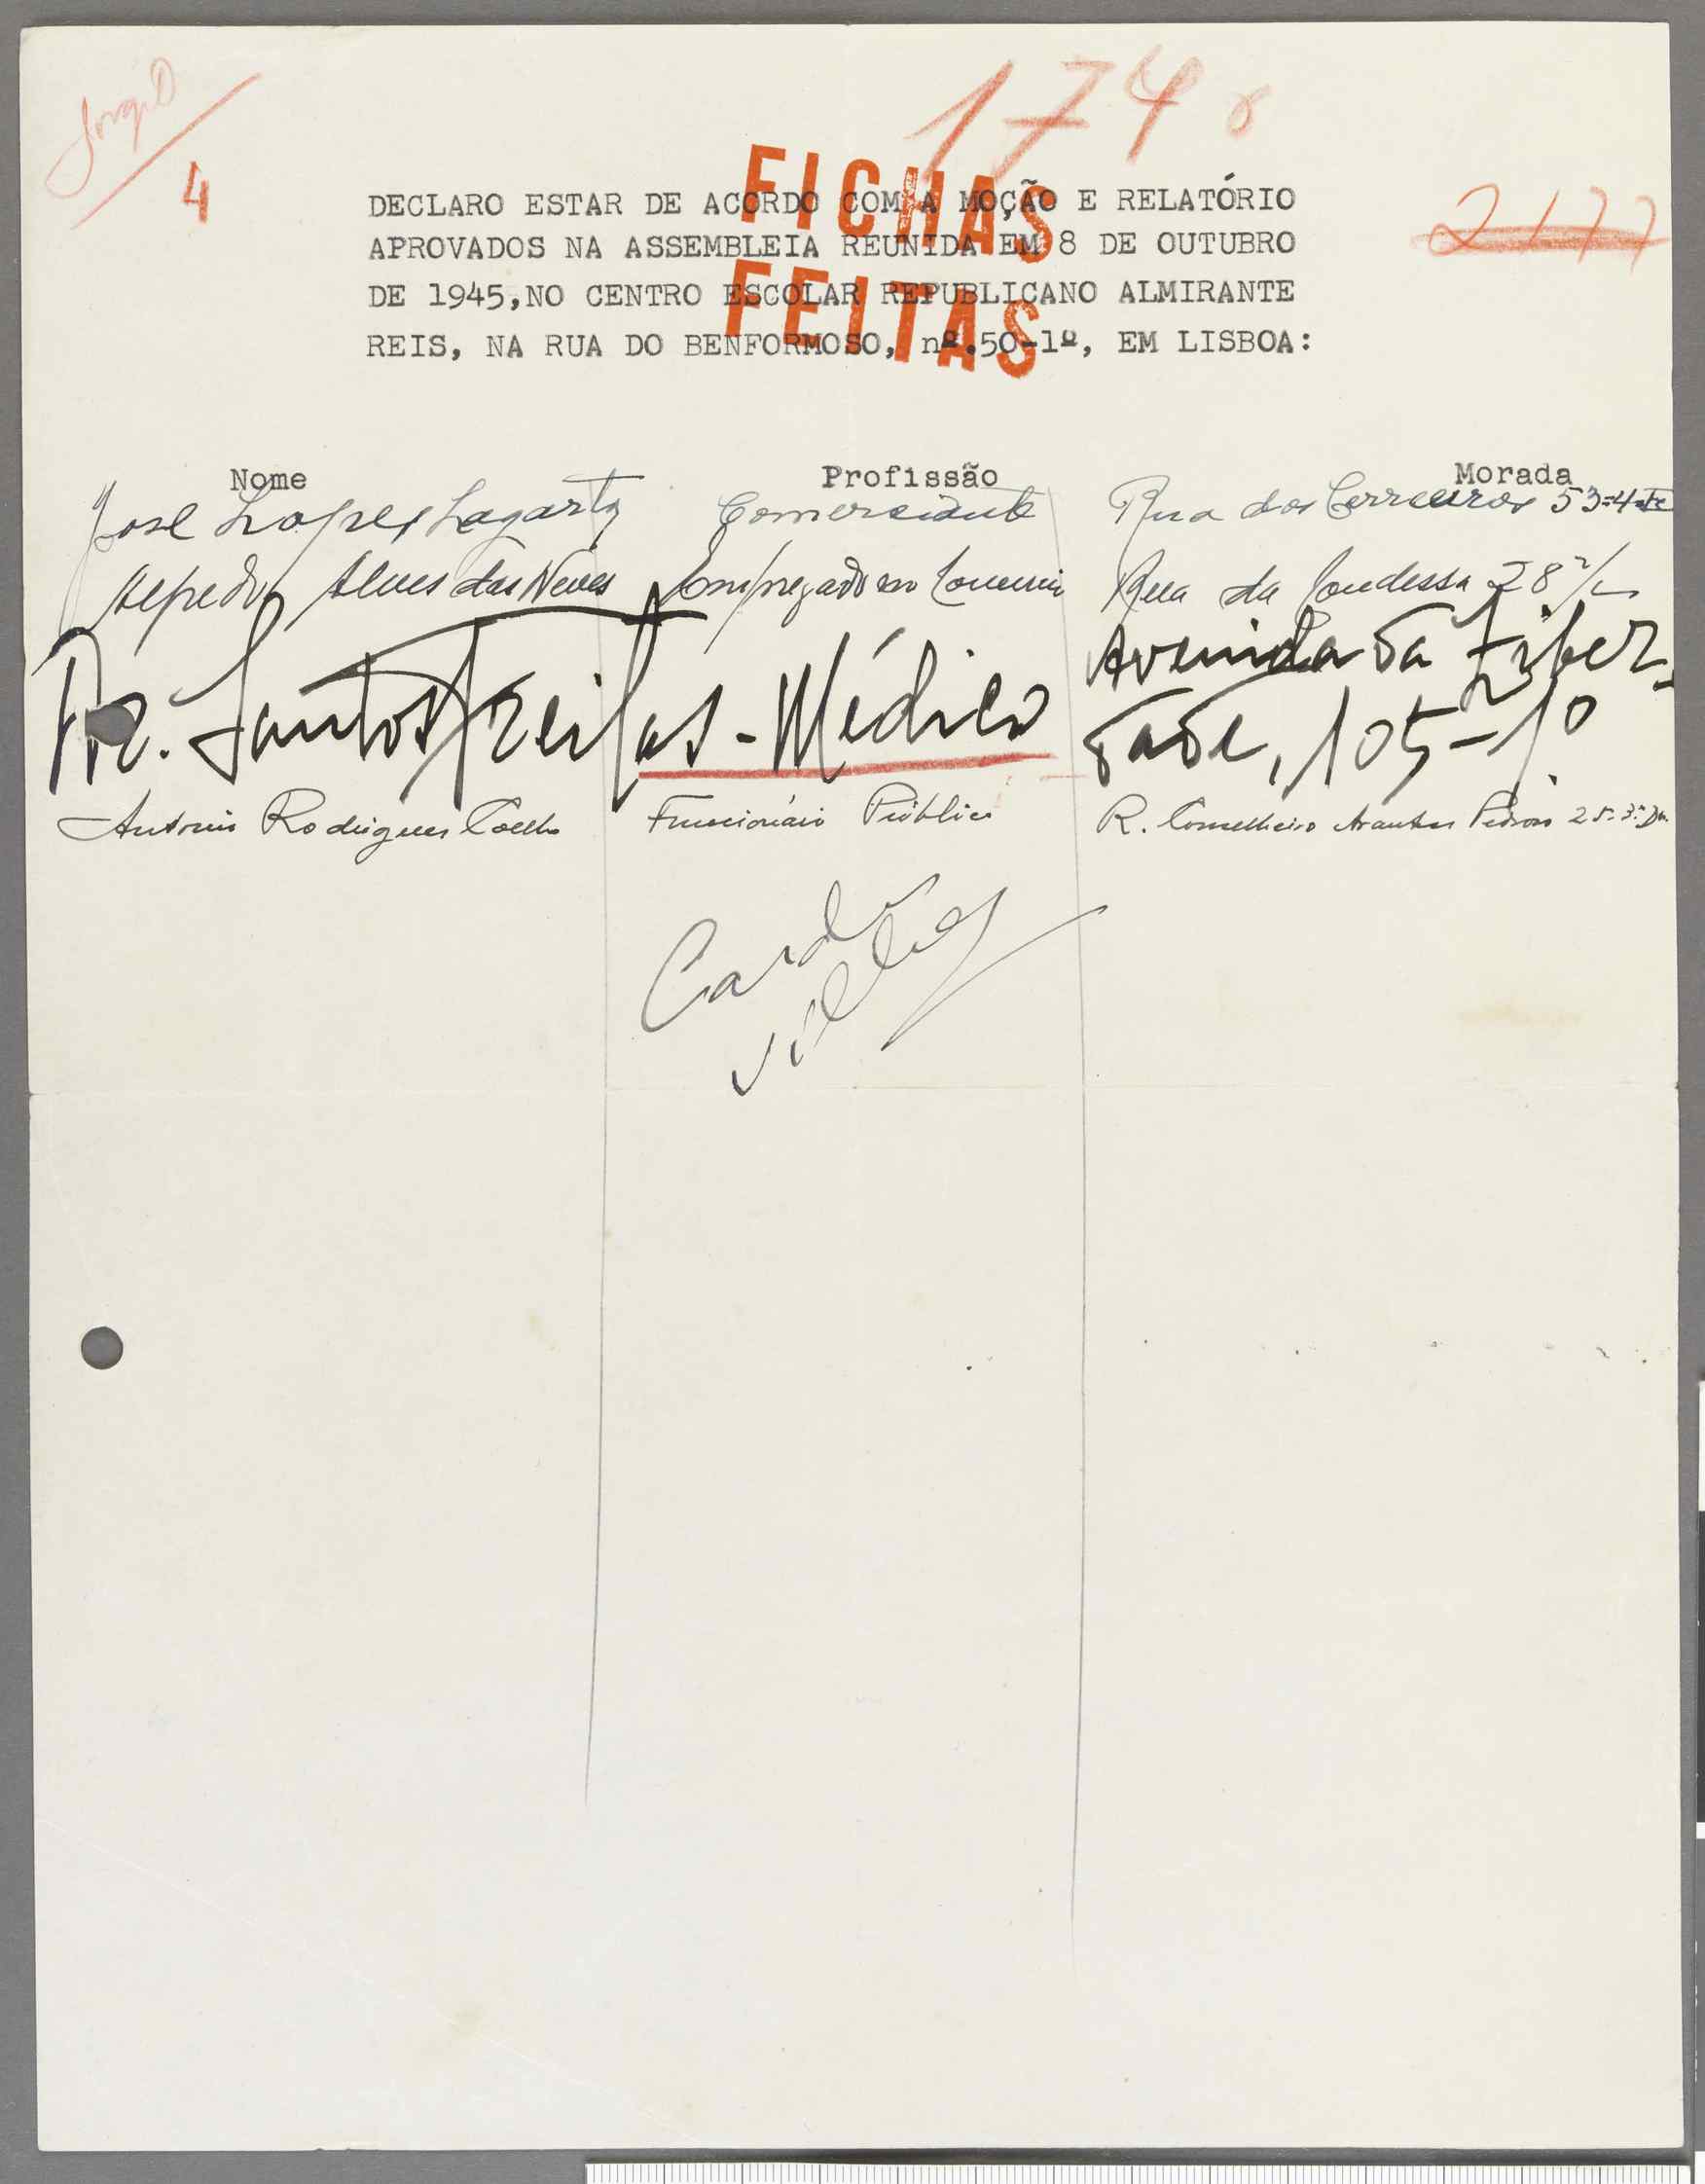 1740
4
FICHAS
FEITAS
2177
DECLARO ESTAR DE ACORDO COM A MOÇÃO E RELATÓRIO
APROVADOS NA ASSEMBLEIA REUNIDA EM 8 DE OUTUBRO
DE 1945,NO CENTRO ESCOLAR REPUBLICANO ALMIRANTE
REIS, NA RUA DO BENFORMOSO, nº.50-1º, EM LISBOA:
Nome Profissão Morada
José Lopes Lagarto Comerciante Rua dos Correeiros 53=4º
Alfredo Alves das Neves Empregado no Comercio Rua da Condessa 28
Dr. Santos Freitas - Médico Avenida da Liber-
dade, 105-1º
Antonio Rodrigues Coelho Funcionário Público R. Conselheiro Arantes Pedroso 25-3º Dto